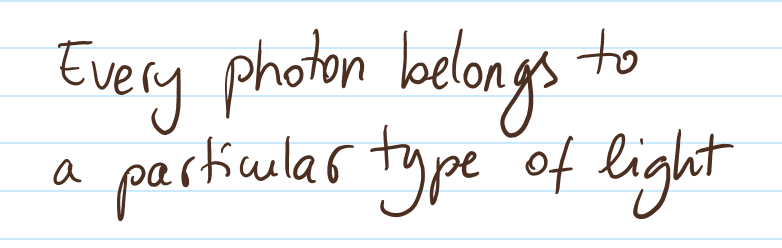 Every photon belongs to
a particular type of light